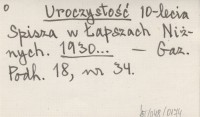 Uroczystość 10-lecia
Spisza w Łapszach Niż-
nych. 1930... — Gaz.
Podh. 18, nr 34.